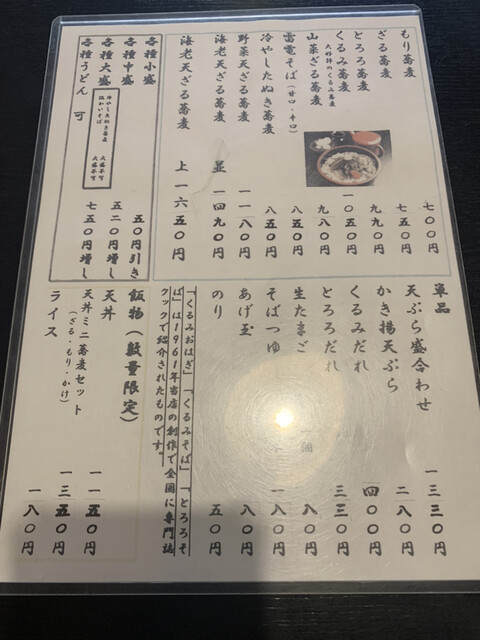 もり蕎麦 七〇〇円
ざる蕎麦 七五〇円
とろろ蕎麦 九九〇円
くるみ蕎麦 一〇五〇円
大好評のくるみ蕎麦
山菜ざる蕎麦 九八〇円
雷電そば(甘口・辛口) 八五〇円
冷やしたぬき蕎麦 八五〇円
野菜天ざる蕎麦 一一八〇円
海老天ざる蕎麦 並 一四九〇円
海老天ざる蕎麦 上 一六五〇円
各種小盛 五〇円引き
各種中盛 五二〇円増し
各種大盛 七五〇円増し
各種うどん 可
冷やしたぬき蕎麦 大盛不可
温かいそば 大盛不可
単品
天ぷら盛合わせ 一三三〇円
かき揚天ぷら 二八〇円
くるみだれ 四〇〇円
とろろだれ 三三〇円
生たまご 一個 八〇円
そばつゆ 一八〇円
あげ玉 八〇円
のり 五〇円
「くるみおはぎ」「くるみそば」「とろろそ
ば」は1961年当店の創作で全国に専門誌
クックで紹介されたものです。
飯物(数量限定)
天丼 一一五〇円
天丼ミニ蕎麦セット 一三五〇円
(ざる・もり・かけ)
ライス 一八〇円